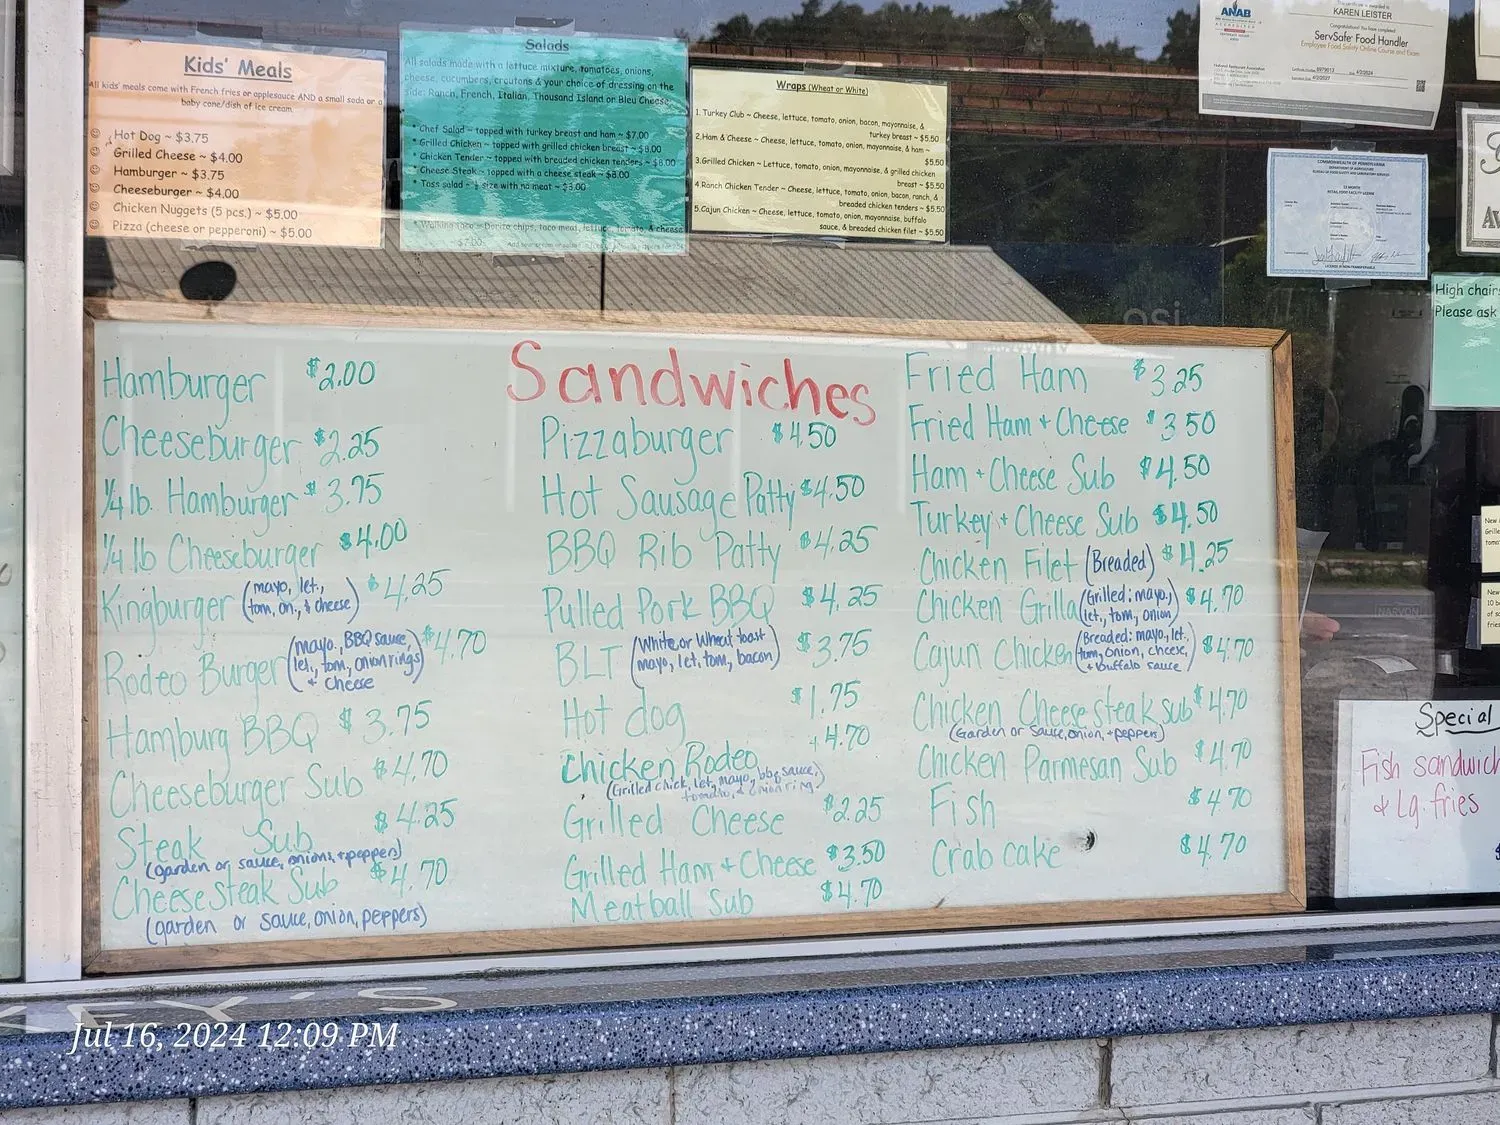 Kids' Meals
All kids' meals come with French fries or applesauce AND a small soda or a
baby cone/dish of ice cream.
Hot Dog ~ $3.75
Grilled Cheese ~ $4.00
Hamburger ~ $3.75
Cheeseburger ~ $4.00
Chicken Nuggets (5 pcs.) ~ $5.00
Pizza (cheese or pepperoni) ~ $5.00
Salads
All salads made with a lettuce mixture, tomatoes, onions,
cheese, cucumbers, croutons & your choice of dressing on the
side: Ranch, French, Italian, Thousand Island or Bleu Cheese
* Chef Salad ~ topped with turkey breast and ham ~ $7.00
* Grilled Chicken ~ topped with grilled chicken breast ~ $8.00
* Chicken Tender ~ topped with breaded chicken tenders ~ $8.00
* Cheese Steak ~ topped with a cheese steak ~ $8.00
* Toss salad ~ ½ size with no meat ~ $3.00
* Walking Taco ~ Dorito chips, taco meat, lettuce, tomato, & cheese
~ $7.00
Wraps (Wheat or White)
1. Turkey Club ~ Cheese, lettuce, tomato, onion, bacon, mayonnaise, &
turkey breast ~ $5.50
2.Ham & Cheese ~ Cheese, lettuce, tomato, onion, mayonnaise, & ham ~
$5.50
3.Grilled Chicken ~ Lettuce, tomato, onion, mayonnaise, & grilled chicken
breast ~ $5.50
4.Ranch Chicken Tender ~ Cheese, lettuce, tomato, onion, bacon, ranch, &
breaded chicken tenders ~ $5.50
5.Cajun Chicken ~ Cheese, lettuce, tomato, onion, mayonnaise, buffalo
sauce, & breaded chicken filet ~ $5.50
ANAB
KAREN LEISTER
Congratulations! You have completed
ServSafe® Food Handler
Employee Food Safety Online Course and Exam
National Restaurant Association
COMMONWEALTH OF PENNSYLVANIA
DEPARTMENT OF AGRICULTURE
RETAIL FOOD FACILITY LICENSE
High chairs
Please ask
Sandwiches
Hamburger $2.00
Cheeseburger $2.25
¼ lb. Hamburger $3.75
¼ lb Cheeseburger $4.00
Kingburger (mayo, let., tom, on., & cheese) $4.25
Rodeo Burger (mayo., BBQ sauce, let., tom, onion rings + cheese $4.70
Hamburg BBQ $3.75
Cheeseburger Sub $4.70
Steak Sub $4.25
(garden or sauce, onions, + peppers)
Cheesesteak Sub $4.70
(garden or sauce, onion, peppers)
Pizzaburger $4.50
Hot Sausage Patty $4.50
BBQ Rib Patty $4.25
Pulled Pork BBQ $4.25
BLT (White or Wheat toast mayo, let, tom, bacon) $3.75
Hot dog $1.75
Chicken Rodeo 4.70
(Grilled chick, let, mayo, bbq sauce,
tomato, & onion ring)
Grilled Cheese $2.25
Grilled Ham + Cheese $3.50
Meatball Sub $4.70
Fried Ham $3.25
Fried Ham + Cheese $3.50
Ham + Cheese Sub $4.50
Turkey + Cheese Sub $4.50
Chicken Filet (Breaded) $4.25
Chicken Grilla (Grilled: mayo., let, tom, onion) $4.70
Cajun Chicken (Breaded: mayo, let. tom, onion, cheese, + buffalo sauce) $4.70
Chicken Cheesesteak Sub $4.70
(Garden or Sauce, onion, + peppers)
Chicken Parmesan Sub $4.70
Fish $4.70
Crab cake $4.70
Special
Fish sandwich
& Lg. fries
EY'S
Jul 16, 2024 12:09 PM